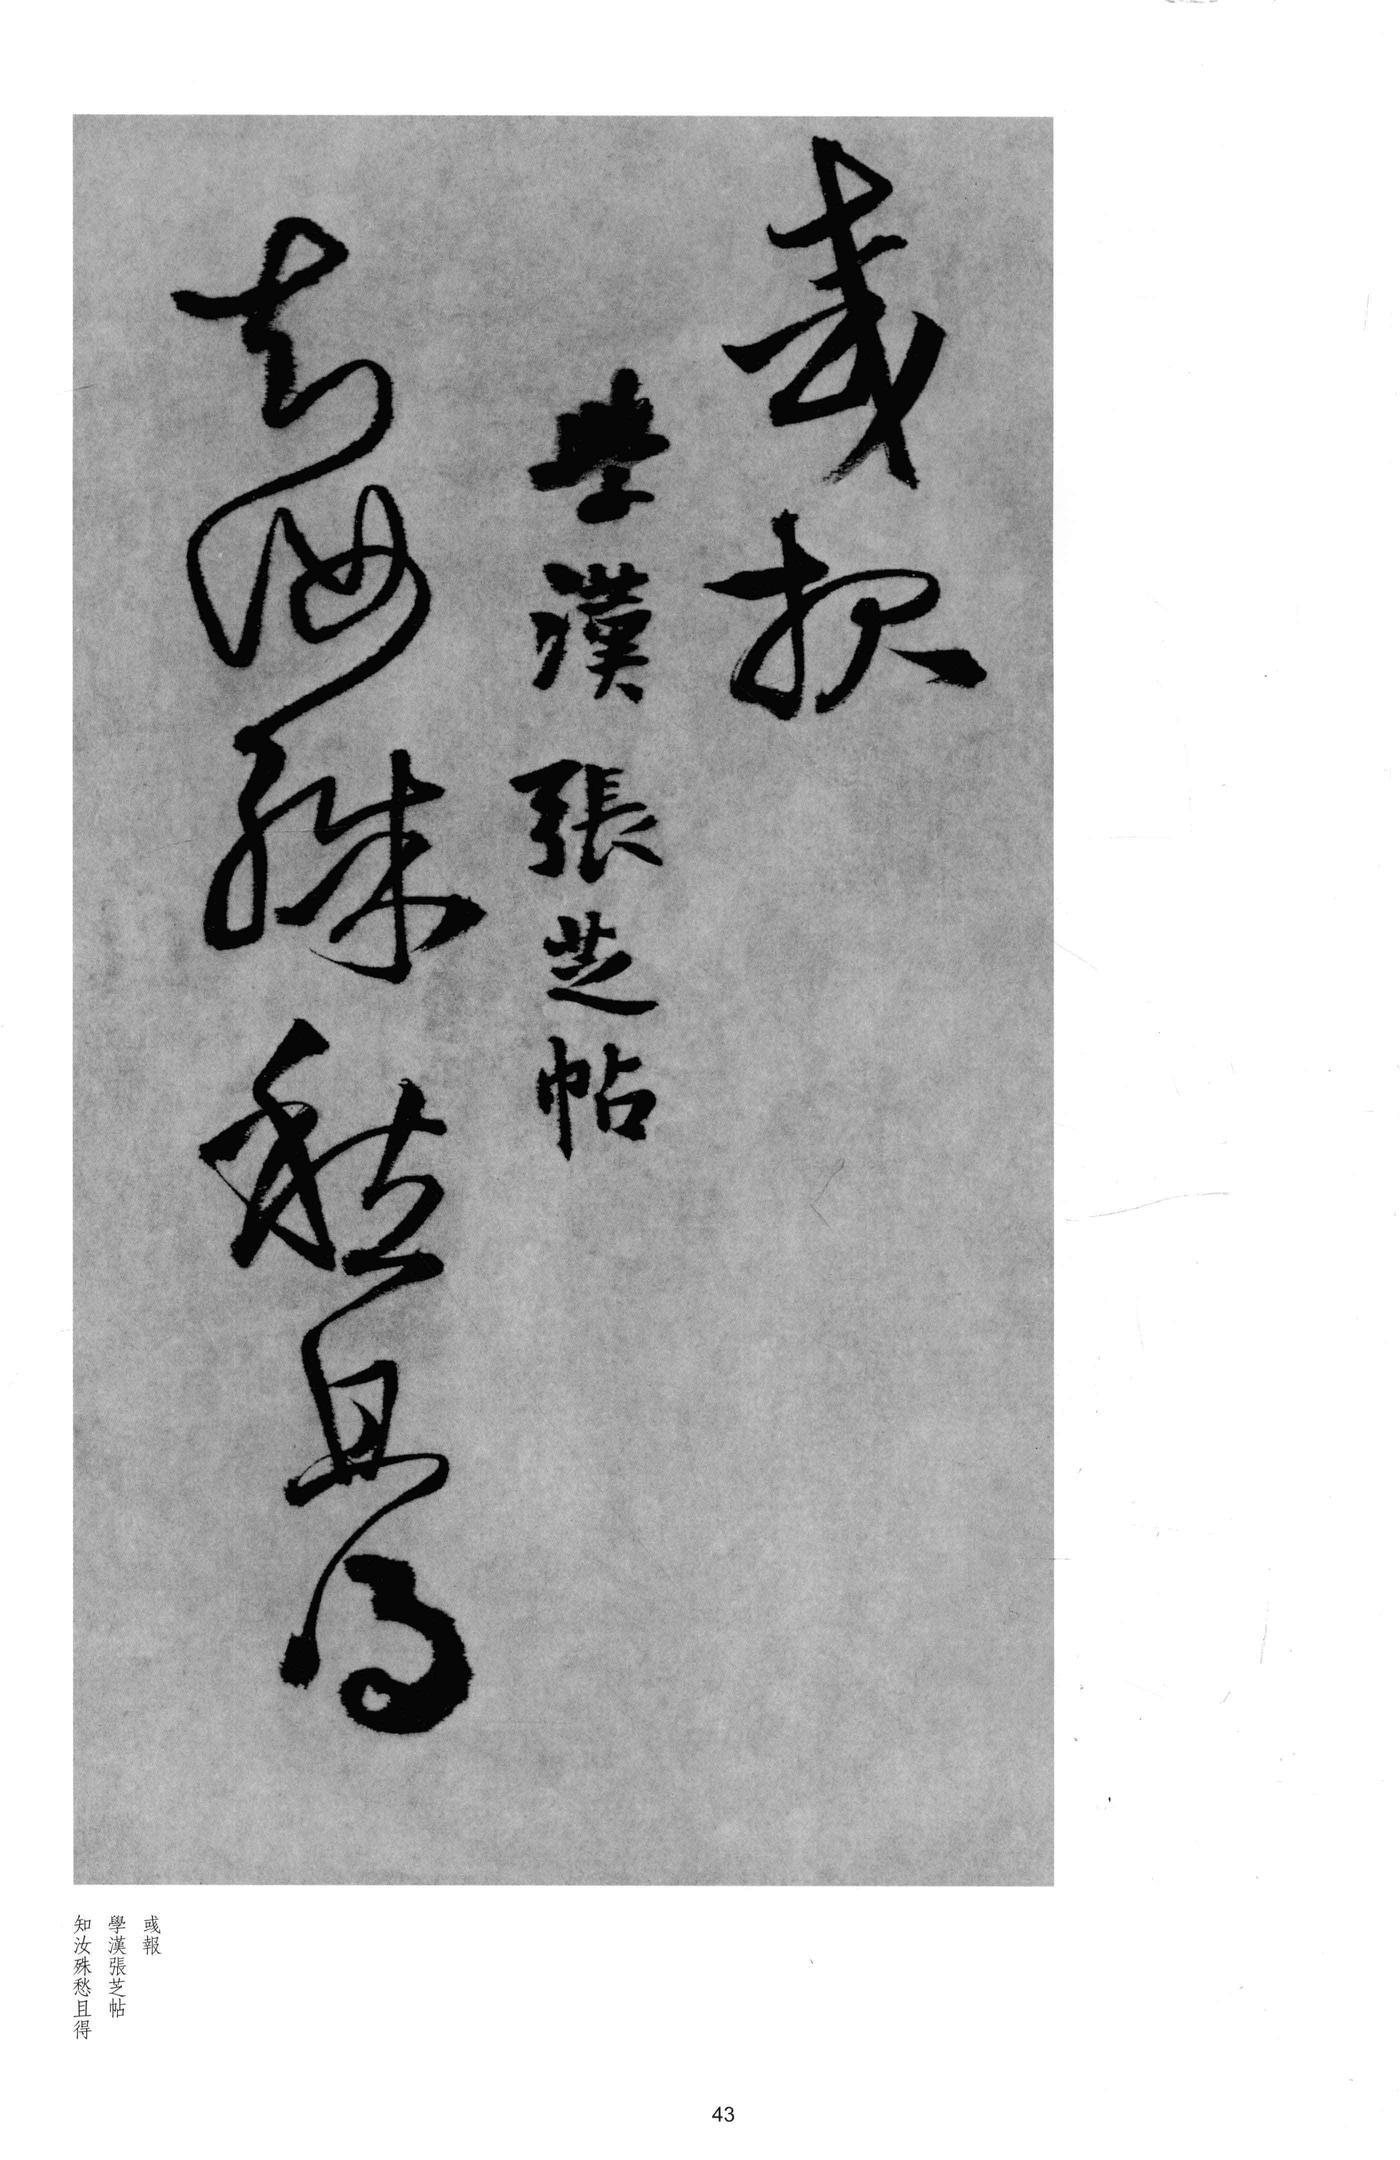 彧報
學漢張芝帖
知汝殊愁且得
彧報
學漢張芝帖
知汝殊愁且得
43